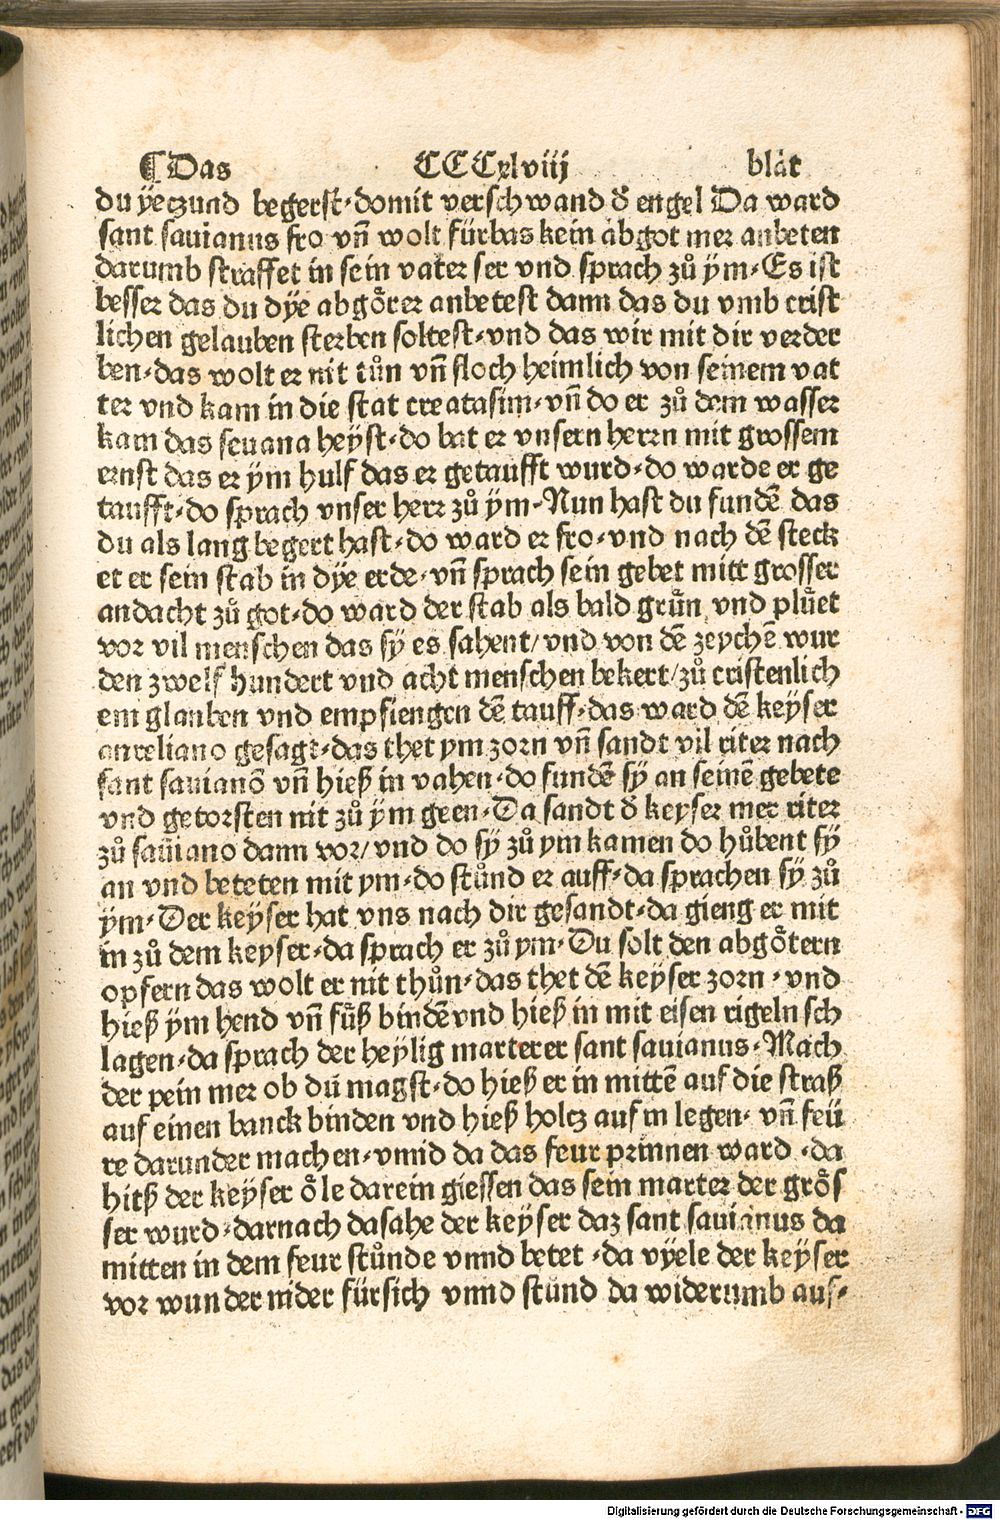 ¶Das CCCxlviij blat
du ÿeczund begerst·domit verschwand d̄ engel Da ward
sant sauianus fro vn̄ wolt fürbas kein abgot mer anbeten
darumb straffet in sein vater ser vnd sprach zů ÿm·Es ist
besser das du dÿe abgo̊ter anbetest dann das du vmb crist
lichen gelauben sterben soltest·vnd das wir mit dir verder
ben·das wolt er nit tůn vn̄ floch heimlich von seinem vat
ter vnd kam in die stat creatasim·vn̄ do er zů dem wasser
kam das seuana heÿst·do bat er vnsern herrn mit grossem
ernst das er ÿm hulf das er getaufft wurd·do warde er ge
taufft·do sprach vnser herr zů ÿm·Nun hast du fundē das
du als lang begert hast·do ward er fro·vnd nach dē steck
et er sein stab in dÿe erde·vn̄ sprach sein gebet mitt grosser
andacht zů got·do ward der stab als bald grůn vnd plůet
vor vil menschen das sÿ es sahent/vnd von dē zeychē wur
den zwelf hundert vnd acht menschen bekert/zů cristenlich
em glauben vnd empfiengen dē tauff·das ward dē keÿser
aureliano gesagt·das thet ym zorn vn̄ sandt vil riter nach
sant sauianō vn̄ hieß in vahen·do fundē sÿ an seinē gebete
vnd getorsten nit zů ÿm geen·Da sandt d̄ keyser mer riter
zů sauiano dann vor/vnd do sÿ zů ym kamen do hůbent sÿ
an vnd beteten mit ym·do stůnd er auff·da sprachen sÿ zů
ÿm·Der keÿser hat vns nach dir gesandt·da gieng er mit
in zů dem keyser·da sprach er zů ym·Du solt den abgo̊tern
opfern das wolt er nit thůn·das thet dē keÿser zorn·vnd
hieß ÿm hend vn̄ fůß bindē vnd hieß in mit eisen rigeln sch
lagen·da sprach der heÿlig marterer sant sauianus·Mach
der pein mer ob du magst·do hieß er in mittē auf die straß
auf einen banck binden vnd hieß holtz auf in legen·vn̄ feü
re darunder machen·vnnd da das feur prinnen ward·da
hieß der keÿser o̊le darein giessen das sein marter der gro̊s
ser wurd·darnach da sahe der keÿser daz sant sauianus da
mitten in dem feur stůnde vnnd betet·da vÿele der keÿser
vor wunder nider fürsich vnnd stůnd da widerumb auf·
Digitalisierung gefördert durch die Deutsche Forschungsgemeinschaft - DFG